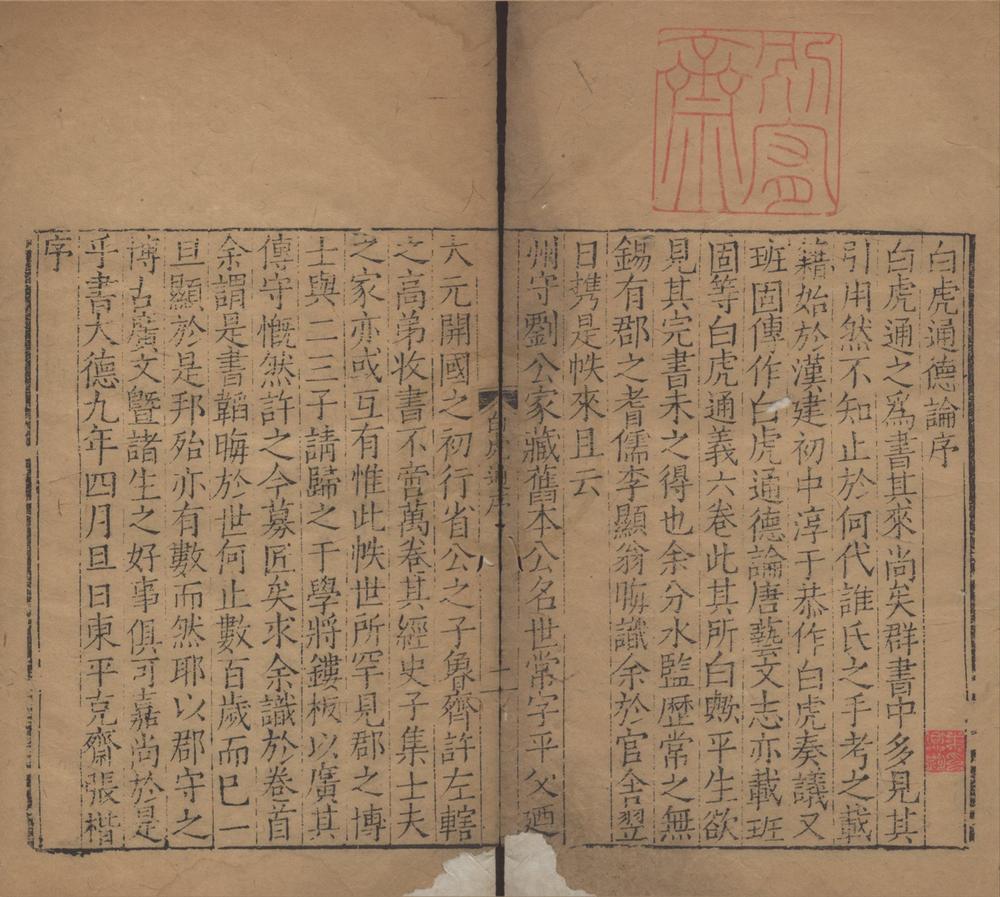 白虎通德論序
白虎通之爲書其來尚矣群書中多見其
引用然不知止於何代誰氏之手考之載
籍始於漢建初中淳于恭作白虎奏議又
班固傳作白虎通德論唐藝文志亦載班
固等白虎通義六卷此其所白歟平生欲
見其完書未之得也余分水監歷常之無
錫有郡之耆儒李顯翁晦識余於官舍翌
日携是帙來且云
州守劉公家藏舊本公名世常字平父迺
白虎通序
一
大元開國之初行省公之子魯齋許左轄
之高弟收書不啻萬卷其經史子集士夫
之家亦或互有惟此帙世所罕見郡之博
士與二三子請歸之于學將鏤板以廣其
傳守慨然許之今募匠矣求余識於卷首
余謂是書韜晦於世何止數百歲而已一
旦顯於是邦殆亦有數而然耶以郡守之
博古廣文曁諸生之好事俱可嘉尚於是
乎書大德九年四月旦日東平克齋張楷
序